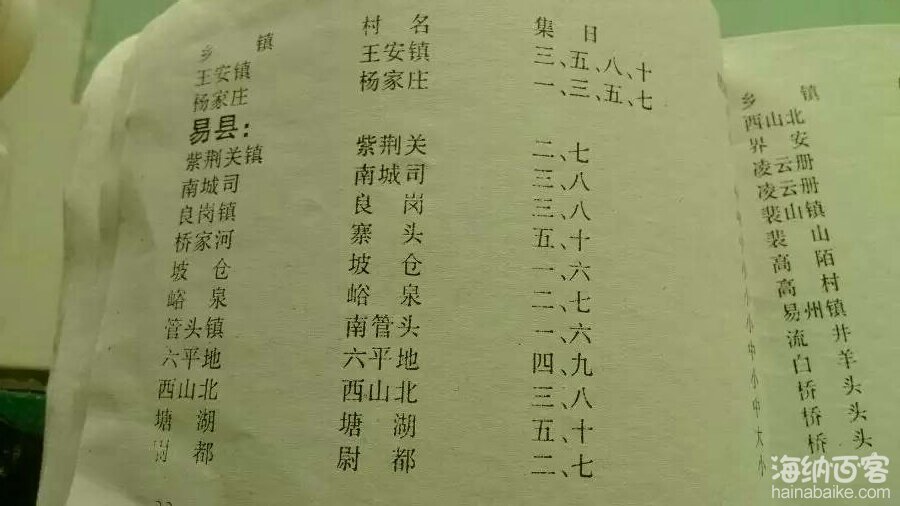 乡镇 村名 集日
王安镇 王安镇 三、五、八、十
杨家庄 杨家庄 一、三、五、七
易县：
紫荆关镇 紫荆关 二、七
南城司 南城司 三、八
良岗镇 良岗 三、八
桥家河 寨头 五、十
坡仓 坡仓 一、六
峪泉 峪泉 二、七
管头镇 南管头 一、六
六平地 六平地 四、九
西山北 西山北 三、八
塘湖 塘湖 五、十
尉都 尉都 二、七
乡镇
西山北
界安
凌云册
凌云册
裴山镇
裴山
高陌
高村
易州镇
流井
白羊
桥头
桥头
桥头
小
小
中
小
中
大
小
海纳百客
hainabaike.com